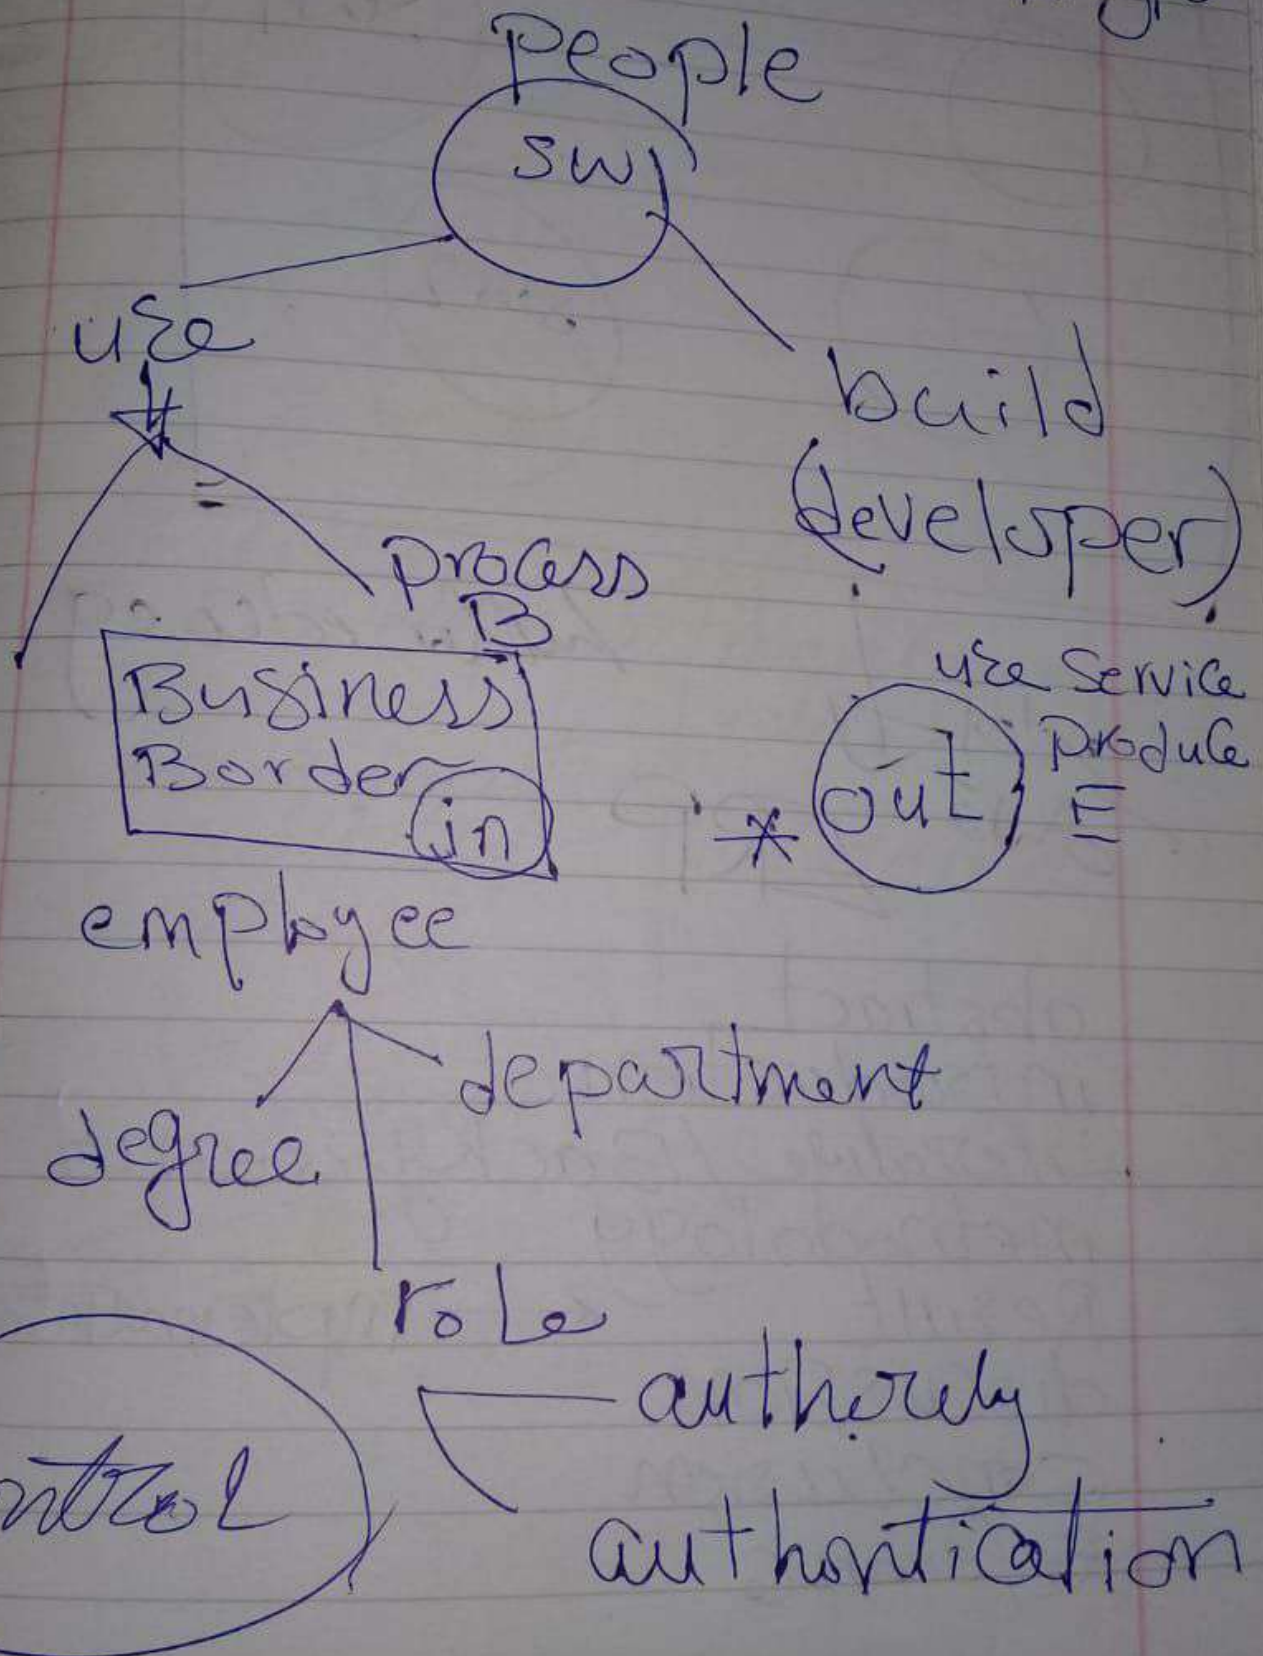 people
sw
use
build
(developer)
process
B
Business
Border
in
use service
produce
* out E
employee
department
degree
role
authorety
authontication
ntrol